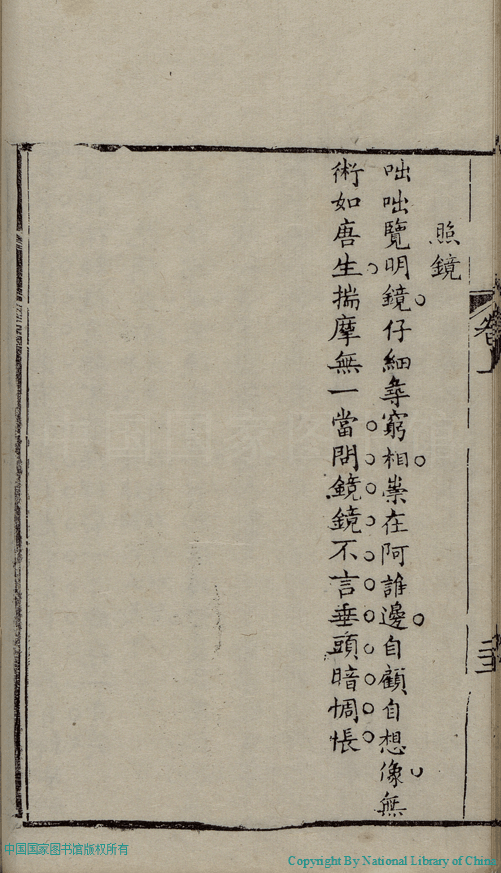 卷一
照鏡
咄咄覽明鏡仔細尋窮相祟在阿誰邊自顧自想像無
術如唐生揣摩無一當問鏡鏡不言垂頭暗惆悵
中国国家图书馆版权所有
Copyright By National Library of China